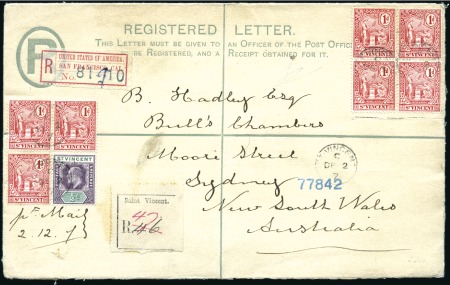 REGISTERED LETTER.
THIS LETTER MUST BE GIVEN TO AN OFFICER OF THE POST OFFICE
BE REGISTERED, AND A RECEIPT OBTAINED FOR IT.
R
UNITED STATES OF AMERICA.
SAN FRANCISCO, CAL.
R No.
1d 1d
ST VINCENT ST VINCENT
1d 1d
ST VINCENT ST VINCENT
B. Hadley Esq
Bull's Chambers
Moore Street
Sydney
New South Wales
Australia
1d 1d
ST VINCENT ST VINCENT
1d ST VINCENT
ST VINCENT
ST VINCENT
C
DE 2
77842
Saint Vincent.
R 46
47
pr Mail
2.12.